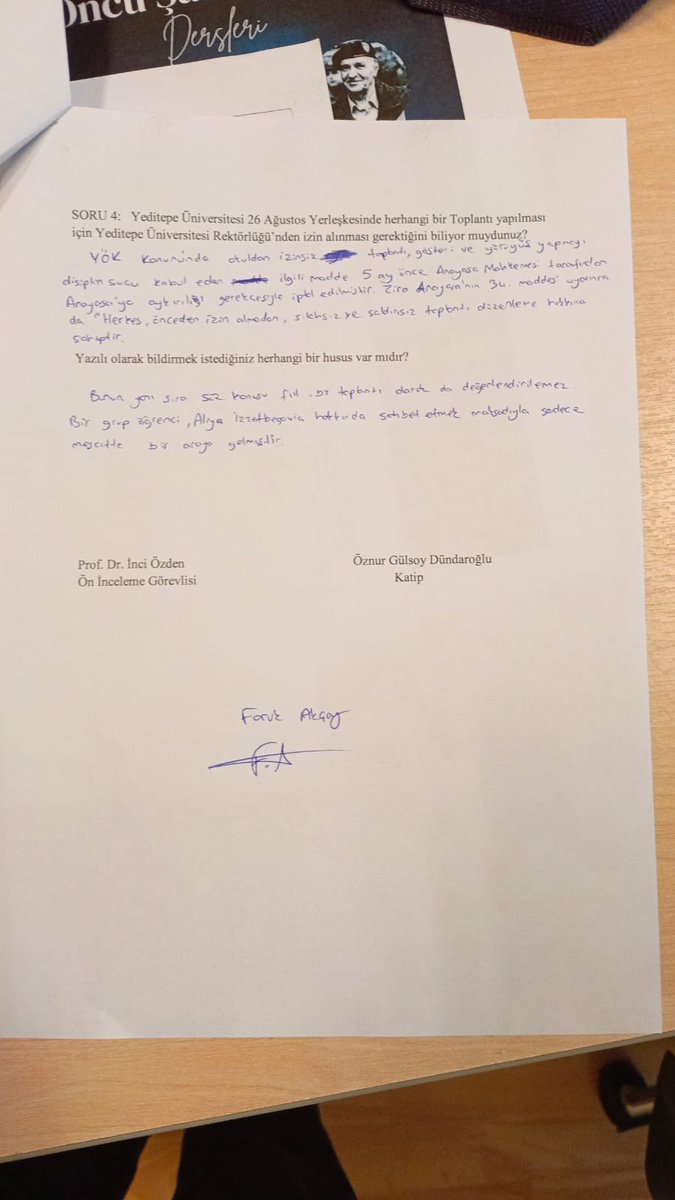 Öncü
Dersleri
SORU 4: Yeditepe Üniversitesi 26 Ağustos Yerleşkesinde herhangi bir Toplantı yapılması
için Yeditepe Üniversitesi Rektörlüğü'nden izin alınması gerektiğini biliyor muydunuz?
YÖK Kanununda okuldan izinsiz toplantı, gösteri ve yürüyüş yapmayı
disiplin suçu kabul eden ilgili madde 5 ay önce Anayasa Mahkemesi tarafından
Anayasa'ya aykırılığı gerekçesiyle iptal edilmiştir. Zira Anayasa'nın 34. maddesi uyarınca
da "Herkes, önceden izin almadan, silahsız ve saldırısız toplantı düzenleme hakkına
sahiptir.
Yazılı olarak bildirmek istediğiniz herhangi bir husus var mıdır?
Bunun yanı sıra söz konusu fiil bir toplantı olarak da değerlendirilemez.
Bir grup öğrenci, Aliya İzzetbegoviç hakkında sohbet etmek maksadıyla sadece
mescitte bir araya gelmiştir.
Prof. Dr. İnci Özden
Öznur Gülsoy Dündaroğlu
Ön İnceleme Görevlisi
Katip
Faruk Akçay
F.A